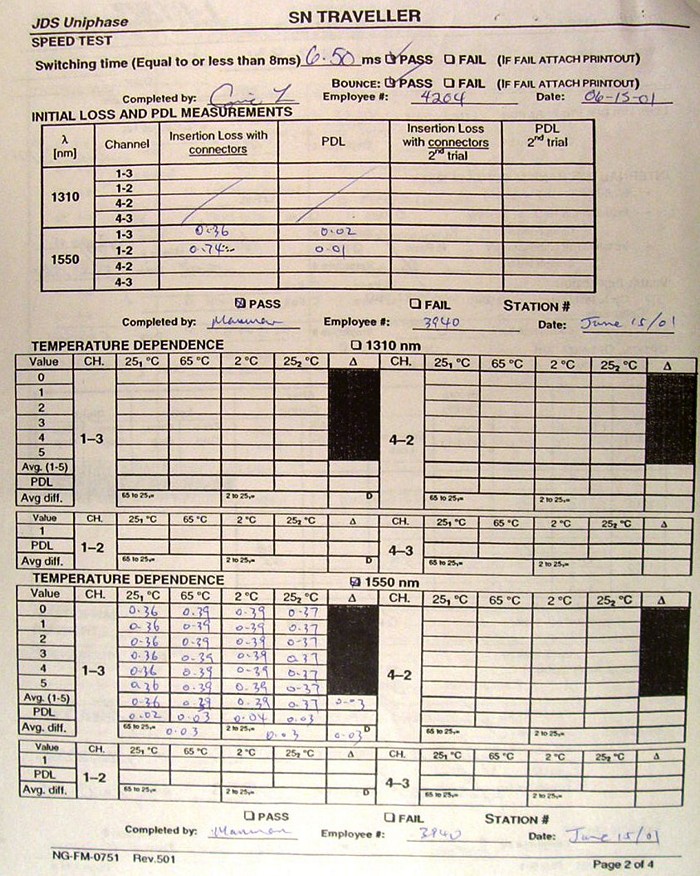 JDS Uniphase SN TRAVELLER
SPEED TEST
Switching time (Equal to or less than 8ms) 6.50 ms ☑ PASS ☐ FAIL (IF FAIL ATTACH PRINTOUT)
BOUNCE: ☑ PASS ☐ FAIL (IF FAIL ATTACH PRINTOUT)
Completed by: Employee #: 4204 Date: 06-15-01
INITIAL LOSS AND PDL MEASUREMENTS
λ [nm] Channel Insertion Loss with connectors PDL Insertion Loss with connectors 2nd trial PDL 2nd trial
1310
1-3
1-2
4-2
4-3
1550
1-3 0.36 0.02
1-2 0.74 0.01
4-2
4-3
☑ PASS ☐ FAIL STATION #
Completed by: Employee #: 3940 Date: June 15/01
TEMPERATURE DEPENDENCE ☐ 1310 nm
Value CH. 25₁ °C 65 °C 2 °C 25₂ °C Δ CH. 25₁ °C 65 °C 2 °C 25₂ °C Δ
0
1
2
3 1–3 4–2
4
5
Avg. (1-5)
PDL
Avg diff. 65 to 25₁= 2 to 25₁= D 65 to 25₁= 2 to 25₁=
Value CH. 25₁ °C 65 °C 2 °C 25₂ °C Δ CH. 25₁ °C 65 °C 2 °C 25₂ °C Δ
1
PDL 1–2 4–3
Avg. diff. 65 to 25₁= 2 to 25₁= D 65 to 25₁= 2 to 25₁=
TEMPERATURE DEPENDENCE ☑ 1550 nm
Value CH. 25₁ °C 65 °C 2 °C 25₂ °C Δ CH. 25₁ °C 65 °C 2 °C 25₂ °C Δ
0 0.36 0.39 0.39 0.37
1 0.36 0.39 0.39 0.37
2 0.36 0.39 0.39 0.37
3 1–3 0.36 0.39 0.39 0.37 4–2
4 0.36 0.39 0.39 0.37
5 0.36 0.39 0.39 0.37
Avg. (1-5) 0.36 0.39 0.39 0.37 0.03
PDL 0.02 0.03 0.04 0.03
Avg. diff. 65 to 25₁= 0.03 2 to 25₁= 0.03 0.03 65 to 25₁= 2 to 25₁=
Value CH. 25₁ °C 65 °C 2 °C 25₂ °C Δ CH. 25₁ °C 65 °C 2 °C 25₂ °C Δ
1
PDL 1–2 4–3
Avg. diff. 65 to 25₁= 2 to 25₁= D 65 to 25₁= 2 to 25₁=
☐ PASS ☐ FAIL STATION #
Completed by: Employee #: 3940 Date: June 15/01
NG-FM-0751 Rev.501 Page 2 of 4